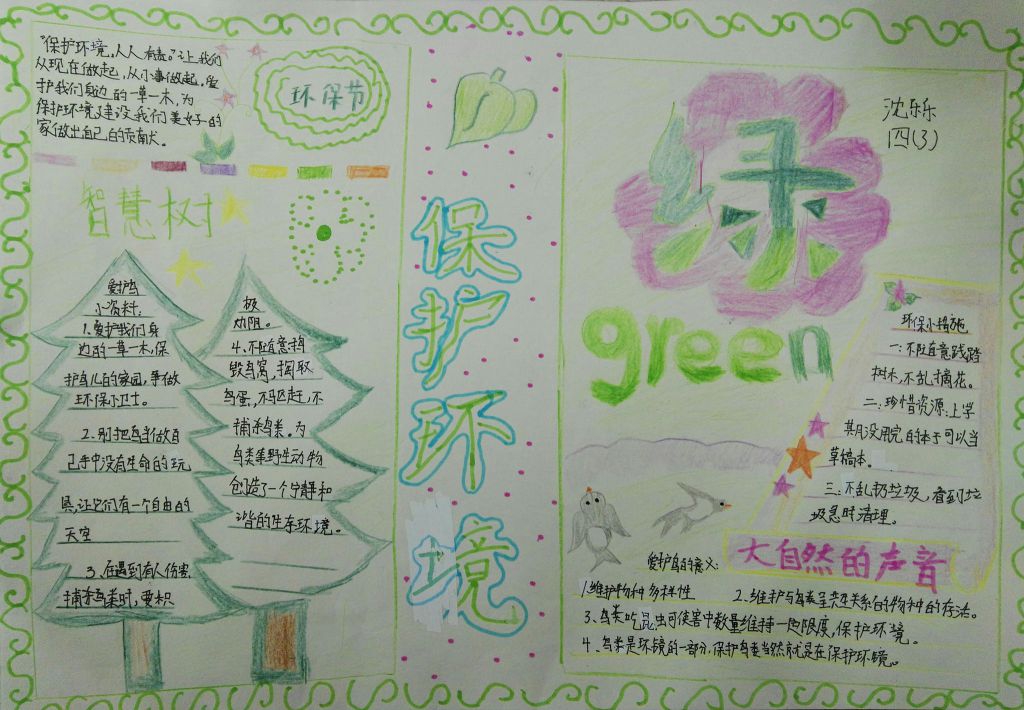 “保护环境,人人有责。”让我们
从现在做起,从小事做起,爱
护我们身边的一草一木,为
保护环境建设我们美好的
家做出自己的贡献。
环保节
智慧树
爱鸟
小资料:
1.爱护我们身
边的一草一木,保
护鸟儿的家园,争做
环保小卫士。
2.别把鸟当做自
己手中没有生命的玩
具,让它们有一个自由的
天空
3.在遇到有人伤害
捕杀鸟类时,要积
极
劝阻。
4.不随意捣
毁鸟窝,掏取
鸟蛋,不驱赶,不
捕杀鸟类。为
鸟类等野生动物
创造了一个宁静和
谐的生存环境。
保护环境
沈乐乐
四(3)
绿
green
环保小措施
一:不随意践踏
树木,不乱摘花。
二:珍惜资源:上学
期没用完的本子可以当
草稿本。
三:不乱扔垃圾,看到垃
圾及时清理。
大自然的声音
爱护鸟的意义:
1.维护物种多样性
2.维护与鸟类呈共生关系的物种的存活。
3、鸟类吃昆虫可使害虫数量维持一定限度,保护环境。
4、鸟类是环镜的一部分,保护鸟类当然就是在保护环镜。